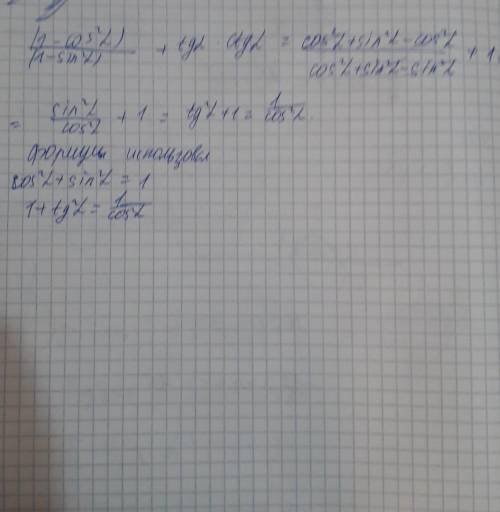 (1 - cos²α) / (1 - sin²α) + tgα · ctgα = (cos²α + sin²α - cos²α) / (cos²α + sin²α - sin²α) + 1
= sin²α / cos²α + 1 = tg²α + 1 = 1 / cos²α
формулы использовал
cos²α + sin²α = 1
1 + tg²α = 1 / cos²α